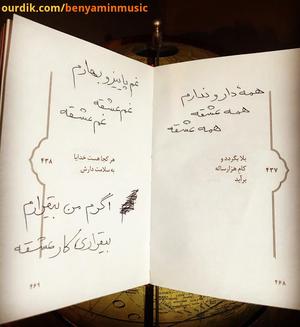 ourdik.com/benyaminmusic
همهٔ دار و ندارم
همه عشقه
همه عشقه
بلا بگردد و
کام هزارساله
برآید
۴۳۷
۴۶۸
غم پاییز و بهارم
غم عشقه
غم عشقه
هر کجا هست خدایا
به سلامت دارش
۴۳۸
اگرم من بیقرارم
بیقراری کار عشقه
۴۶۹